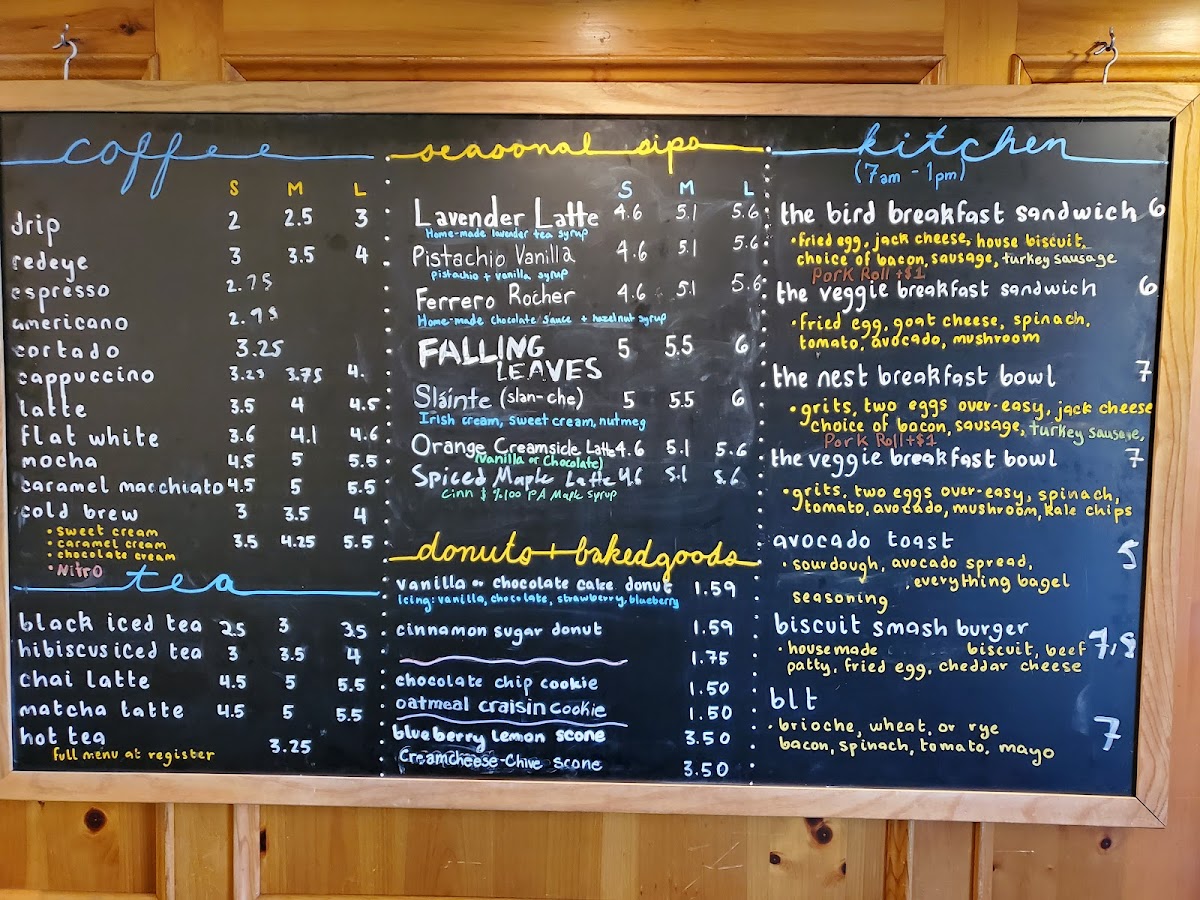 coffee
S M L
drip 2 2.5 3
redeye 3 3.5 4
espresso 2.75
americano 2.95
cortado 3.25
cappuccino 3.25 3.75 4.
latte 3.5 4 4.5
flat white 3.6 4.1 4.6
mocha 4.5 5 5.5
caramel macchiato 4.5 5 5.5
cold brew 3 3.5 4
• sweet cream
• caramel cream 3.5 4.25 5.5
• chocolate cream
• Nitro
tea
black iced tea 2.5 3 3.5
hibiscus iced tea 3 3.5 4
chai latte 4.5 5 5.5
matcha latte 4.5 5 5.5
hot tea 3.25
full menu at register
seasonal sips
S M L
Lavender Latte 4.6 5.1 5.6
Home-made lavender tea syrup
Pistachio Vanilla 4.6 5.1 5.6
pistachio + vanilla syrup
Ferrero Rocher 4.6 5.1 5.6
Home-made chocolate sauce + hazelnut syrup
FALLING 5 5.5 6
LEAVES
Sláinte (slan-che) 5 5.5 6
Irish cream, sweet cream, nutmeg
Orange Creamsicle Latte 4.6 5.1 5.6
(Vanilla or Chocolate)
Spiced Maple Latte 4.6 5.1 5.6
Cinn & %100 PA Maple Syrup
donuts + baked goods
vanilla or chocolate cake donut 1.59
Icing: vanilla, chocolate, strawberry, blueberry
cinnamon sugar donut 1.59
1.75
chocolate chip cookie 1.50
oatmeal craisin cookie 1.50
blueberry lemon scone 3.50
Creamcheese-Chive scone 3.50
kitchen
(7am - 1pm)
the bird breakfast sandwich 6
• fried egg, jack cheese, house biscuit,
choice of bacon, sausage, turkey sausage
Pork Roll +$1
the veggie breakfast sandwich 6
• fried egg, goat cheese, spinach,
tomato, avocado, mushroom
the nest breakfast bowl 7
• grits, two eggs over-easy, jack cheese
choice of bacon, sausage, turkey sausage,
Pork Roll +$1
the veggie breakfast bowl 7
• grits, two eggs over-easy, spinach,
tomato, avocado, mushroom, kale chips
avocado toast 5
• sourdough, avocado spread,
everything bagel
seasoning
biscuit smash burger 7.5
• housemade biscuit, beef
patty, fried egg, cheddar cheese
blt 7
• brioche, wheat, or rye
bacon, spinach, tomato, mayo